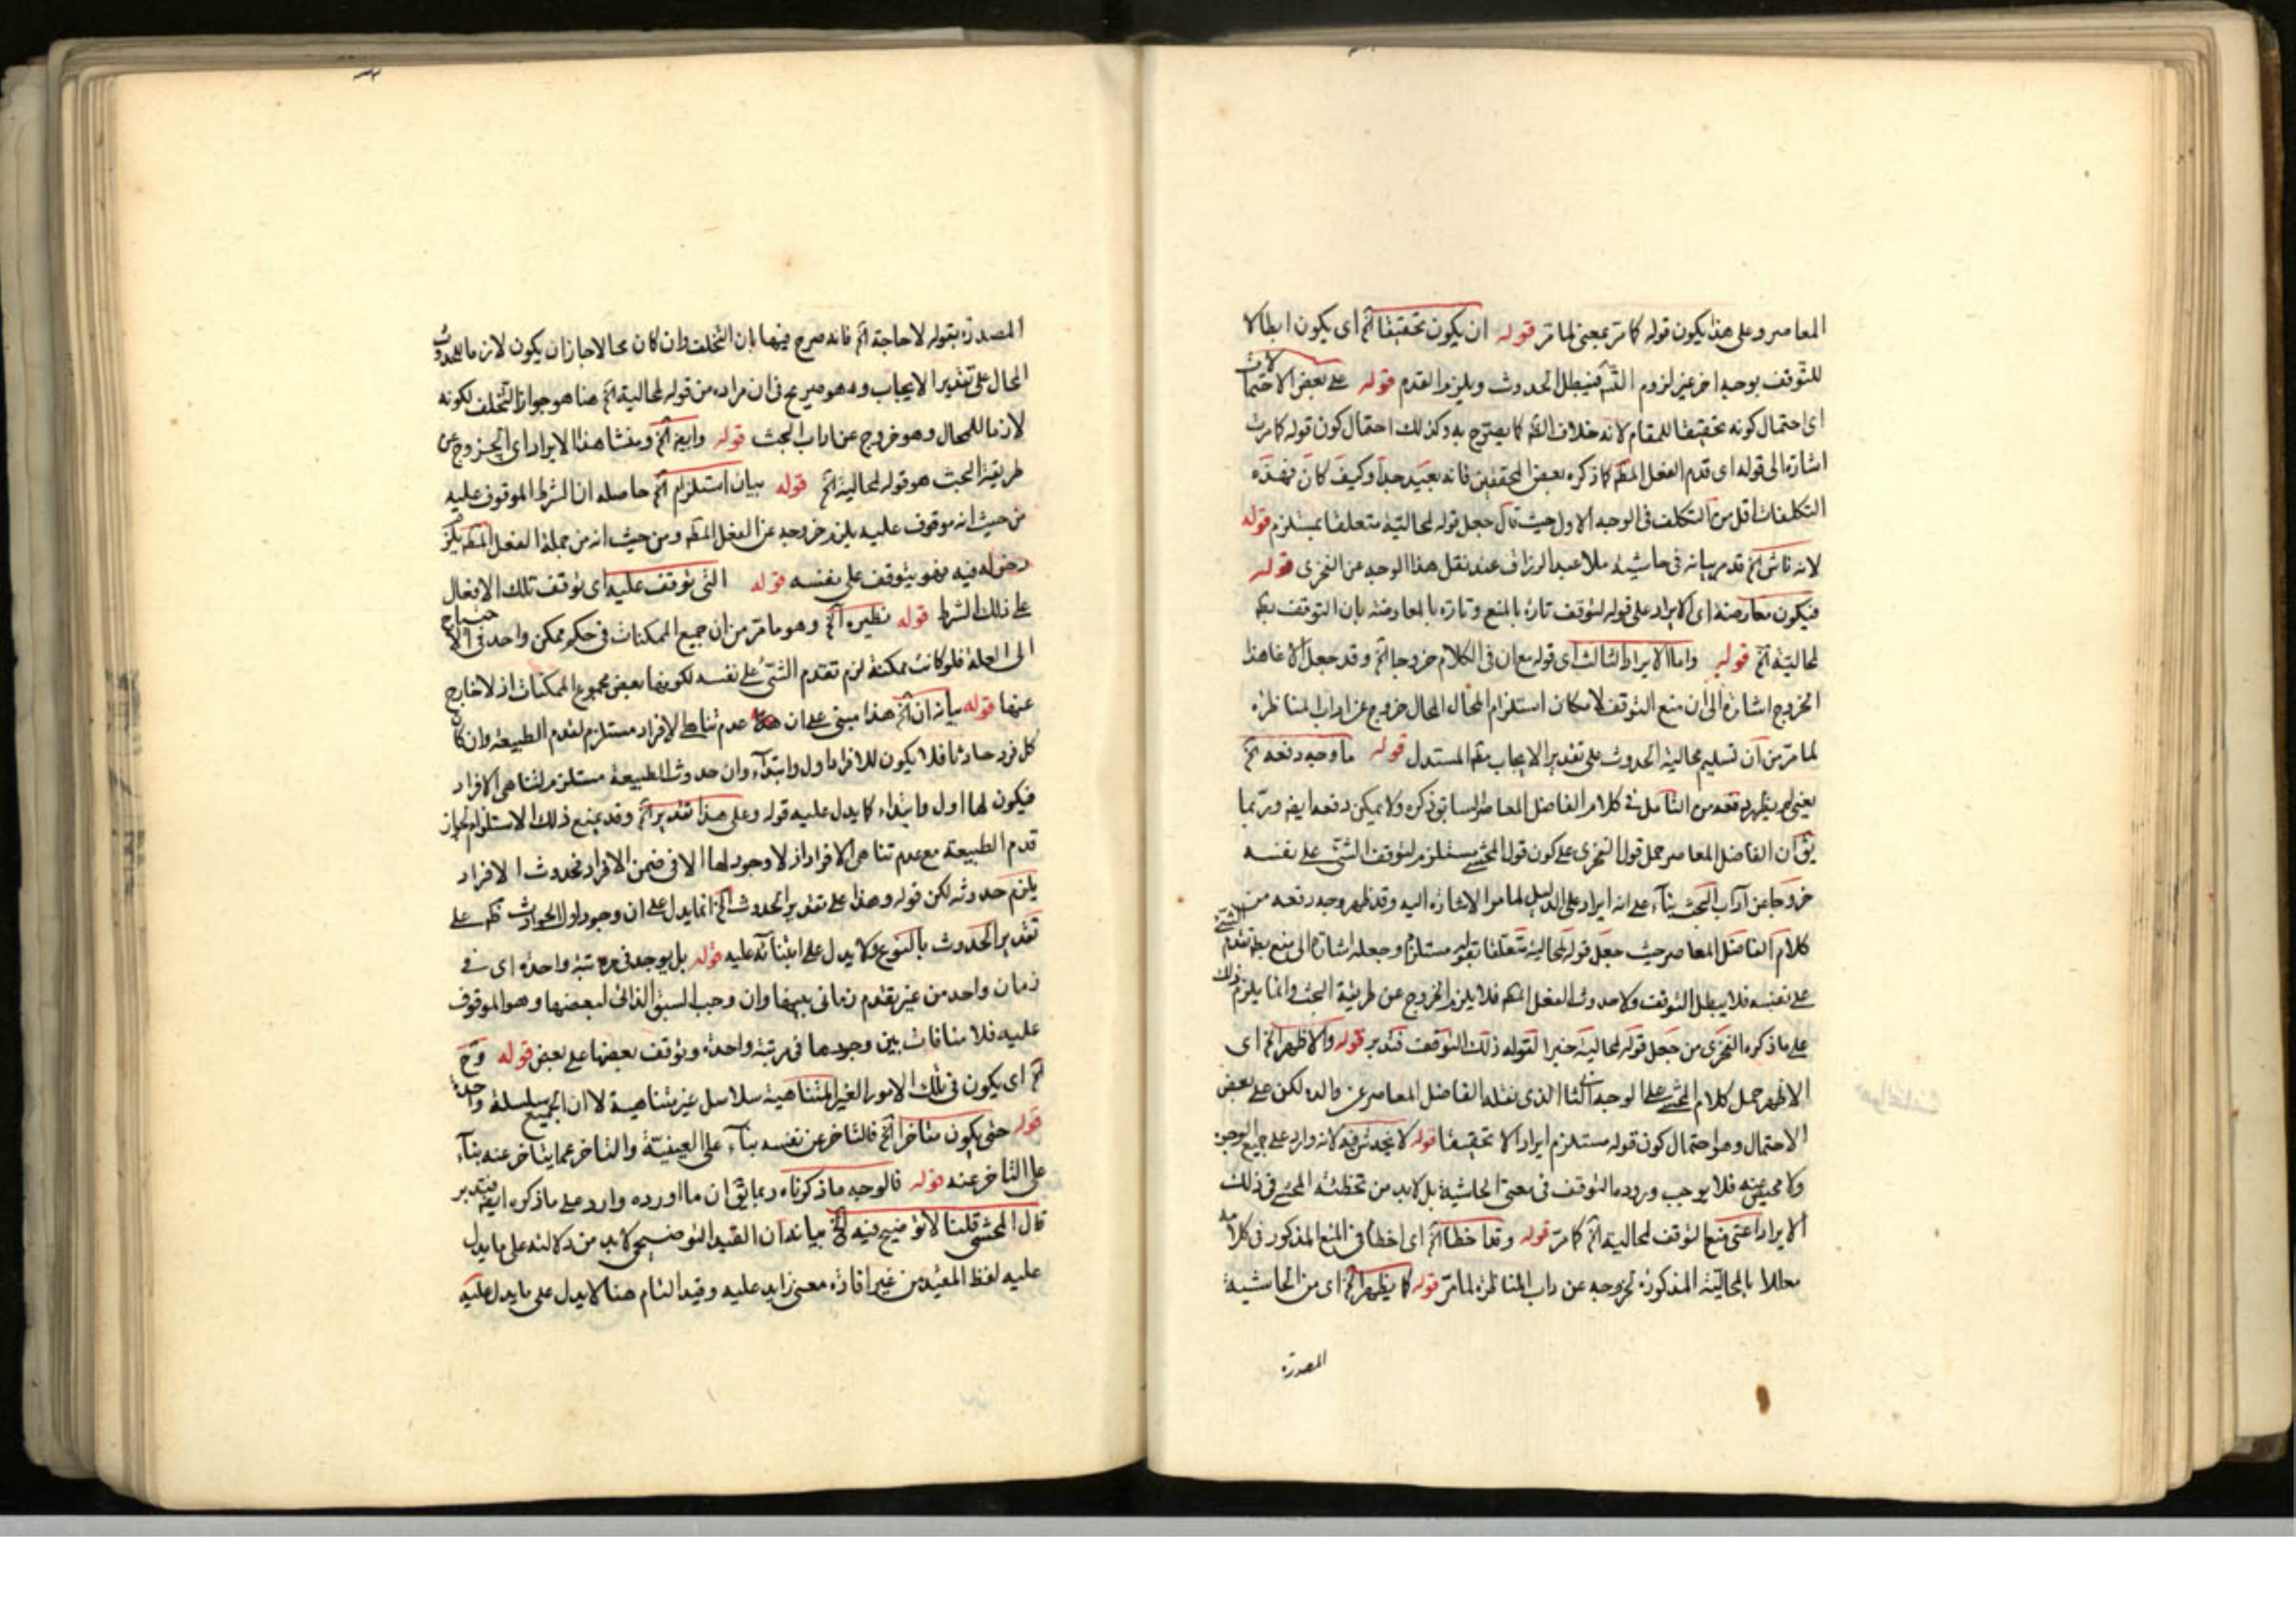 المعاصر وعلى هذا يكون قوله كما مر بمعنى لما مر قوله ان يكون تحقيقا الخ اى يكون ابطالا
للتوقف بوجه اخر غير لزوم فيبطل الحدوث ويلزم القدم قوله على بعض الاحتمالات
اى احتمال كونه تحقيقا للمقام لانه خلاف الظ كما يصرح به وكذلك احتمال كون قوله كما مرت
اشارة الى قوله اى قدم الفعل المط كما ذكره بعض المحققين فانه بعيد جدا وكيف كان فهذه
التكلفات اقل من التكلف فى الوجه الاول حيث قال جعل قوله لمحالية متعلقا بمستلزم قوله
لانه ناش الخ قد مر بيانه فى حاشية ملا عبد الرزاق عند نقل هذا الوجه عن الفخرى قوله
فيكون معارضة اى الايراد على قوله لتوقف تارة بالمنع وتارة بالمعارضة بان التوقف بط
لمحالية الخ قوله واما الايراد الثالث اى قوله مع ان فى الكلام خروجا الخ وقد جعل الاغا هذا
الخروج اشارة الى ان منع التوقف لامكان استلزام المحال المحال خروج عن اداب المناظرة
لما مر من ان تسليم محالية الحدوث على تقدير الايجاب مط المستدل قوله ما وجه دفعه الخ
يعنى لم يظهر دفعه من التامل فى كلام الفاضل المعاصر السابق ذكره ولا يمكن دفعه ايض وربما
يق ان الفاضل المعاصر حمل قول الفخرى على كون قول المحشى مستلزم لتوقف الشئ على نفسه
خروجا عن آداب البحث بناء على انه ايراد على الدليل لما مر الاشارة اليه وقد ظهر وجه دفعه من
كلام الفاضل المعاصر حيث جعل قوله لمحالية متعلقا بقوله مستلزم وجعله اشارة الى منع بط تقدم الشئ
على نفسه فلا يبطل التوقف ولا حدوث الفعل المط فلا يلزم الخروج عن طريقة البحث وانما يلزم ذلك
على ما ذكره الفخرى من جعل قوله لمحالية خبرا لقوله ذلك التوقف فتدبر قوله والاظهر الخ اى
الاظهر حمل كلام المحشى على الوجه الثانى الذى نقله الفاضل المعاصر عن والده لكن على بعض
الاحتمال وهو احتمال كون قوله مستلزم ايرادا لا تحقيقا قوله لا يخدش فيه لانه وارد على جميع الوجوه
ولا محيص عنه فلا يوجب وروده التوقف فى معنى الحاشية بل لابد من تخطئة المحشى فى ذلك
الايراد اعنى منع التوقف لمحالية الخ كما مر قوله وقد اخطأ الخ اى اخطأ فى المنع المذكور فى كلامه
معللا بالمحالية المذكورة لخروجه عن داب المناظرة لما مر قوله كما يظهر الخ اى من الحاشية
المصدرة
المصدرة بقوله لا حاجة الخ فانه صرح فيها بان التخلف وان كان محالا جاز ان يكون لازما للحدوث
المحال على تقدير الايجاب وهو صريح فى ان مراده من قوله لمحالية الخ هنا هو جواز التخلف لكونه
لازما للمحال وهو خروج عن داب البحث قوله وايض الخ ومنشا هذا الايراد اى الخروج عن
طريقة البحث هو قوله لمحالية الخ قوله بيان استلزام الخ حاصله ان الشرط الموقوف عليه
من حيث انه موقوف عليه يلزم خروجه عن الفعل المط ومن حيث انه من جملة الفعل المط يلزم
دخوله فيه فهو يتوقف على نفسه قوله التى يتوقف عليه اى توقف تلك الافعال
على ذلك الشرط قوله نظيره الخ وهو ما مر من ان جميع الممكنات فى حكم ممكن واحد فى الاحتياج
الى العلة فلو كانت ممكنة لزم تقدم الشئ على نفسه لكونها بعض مجموع الممكنات اذ لا خارج
عنها قوله بيانه ان الخ هذا مبنى على ان عدم تناهى الافراد مستلزم لقدم الطبيعة وان كان
كل فرد حادثا فلا يكون للافراد اول وابتداء وان حدوث الطبيعة مستلزم لتناهى الافراد
فيكون لها اول وابتداء كما يدل عليه قوله وعلى هذا تقدير الخ وقد يمنع ذلك الاستلزام لجواز
قدم الطبيعة مع عدم تناهى الافراد اذ لا وجود لها الا فى ضمن الافراد فحدوث الافراد
يلزم حدوثه لكن قوله وهذا على تقدير الحدوث الخ انما يدل على ان وجود اول الحوادث على
تقدير الحدوث بالنوع ولا يدل على ابتنائه عليه قوله بل يوجد فى مرتبة واحدة اى فى
زمان واحد من غير تقدم زمانى بينها وان وجب السبق الذاتى لبعضها وهو الموقوف
عليه فلا منافات بين وجودها فى مرتبة واحدة وتوقف بعضها على بعض قوله وح
الخ اى يكون فى تلك الامور الغير المتناهية سلاسل غير متناهية لا ان الجميع سلسلة واحدة
قوله حتى يكون متأخرا الخ فالتاخر عن نفسه بناء على العينية والتاخر عما يتاخر عنه بناء
على التاخر عنه قوله فالوجه ما ذكرناه ربما يق ان ما اورده وارد على ما ذكره ايض فتدبر
قال المحشى قلنا لا توضيح فيه الخ بيانه ان القيد التوضيحى لابد من دلالته على ما يدل
عليه لفظ المقيد من غير افادة معنى زايد عليه وقيد التام هنا لا يدل على ما يدل عليه